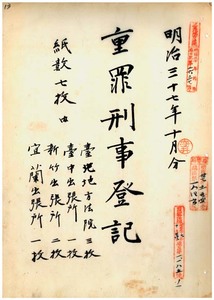 明治三十七年十月分
重罪刑事登記
紙数七枚内
臺北地方法院 三枚
臺中出張所 一枚
新竹出張所 二枚
宜蘭出張所 一枚
19